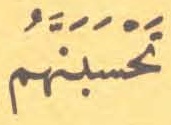 تَحْسَبَنَّهُم